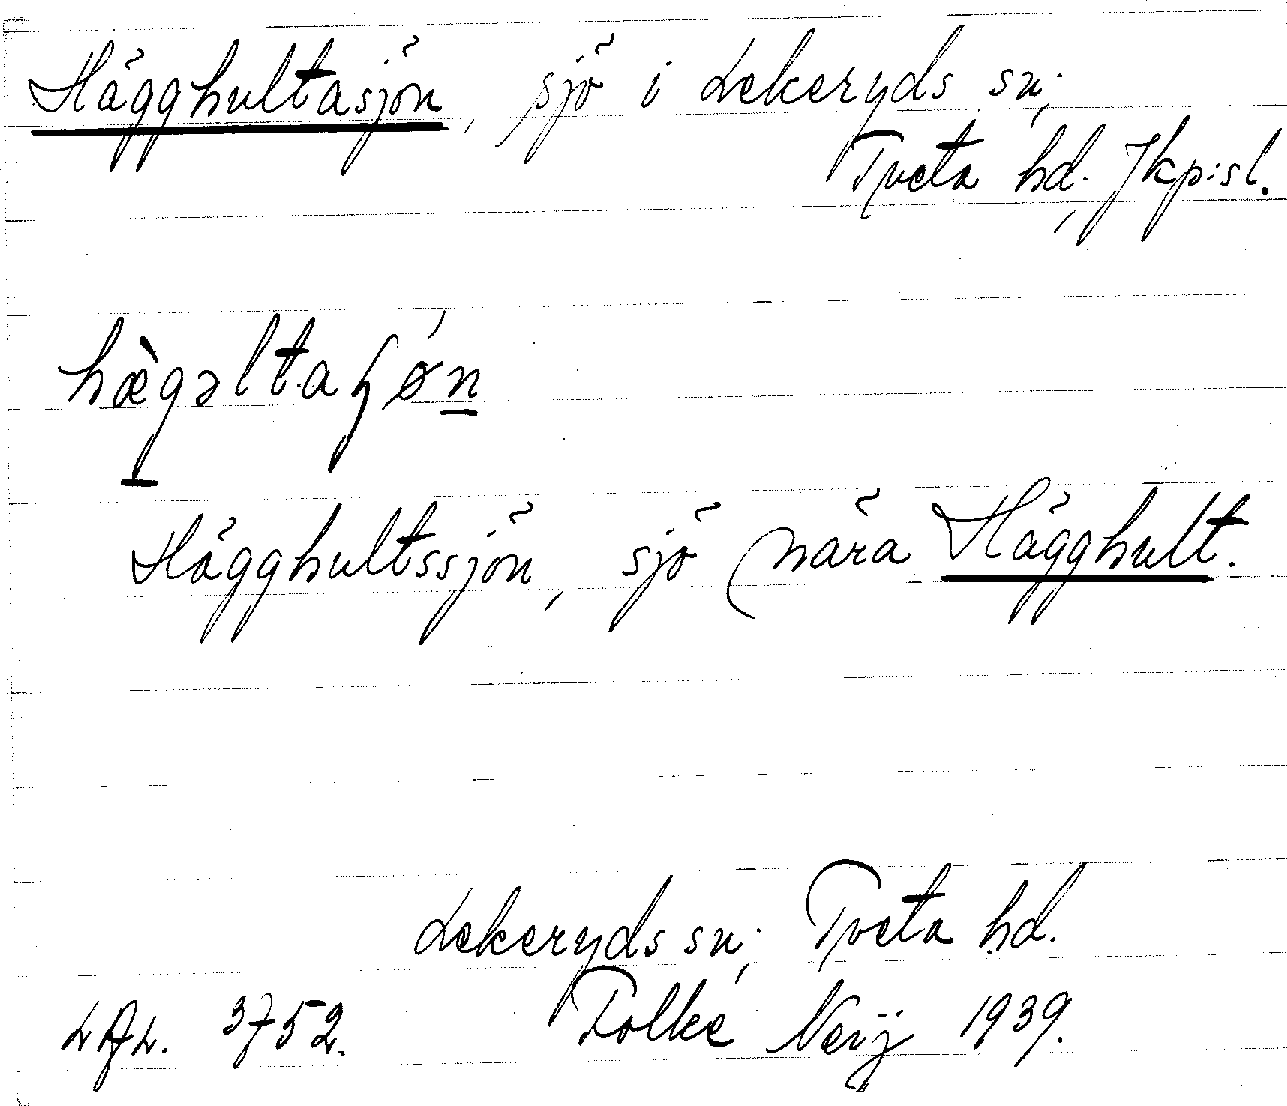 Hägghultasjön, sjö i Lekeryds sn;
Tveta hd. Jkp:sl.
hæ̀gəltaɧøn
Hägghultssjön, sjö nära Hägghult.
Lekeryds sn; Tveta hd.
3752. Folke Neij 1939.